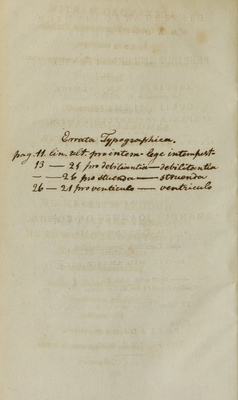 Errata Typographica.
pag. 11. lin. ult. pro intem- lege intempest-
13 — 25 pro debiliantia — debilitantia
— — 26 pro stuenda — struenda
26 — 21 pro venticulo — ventriculo